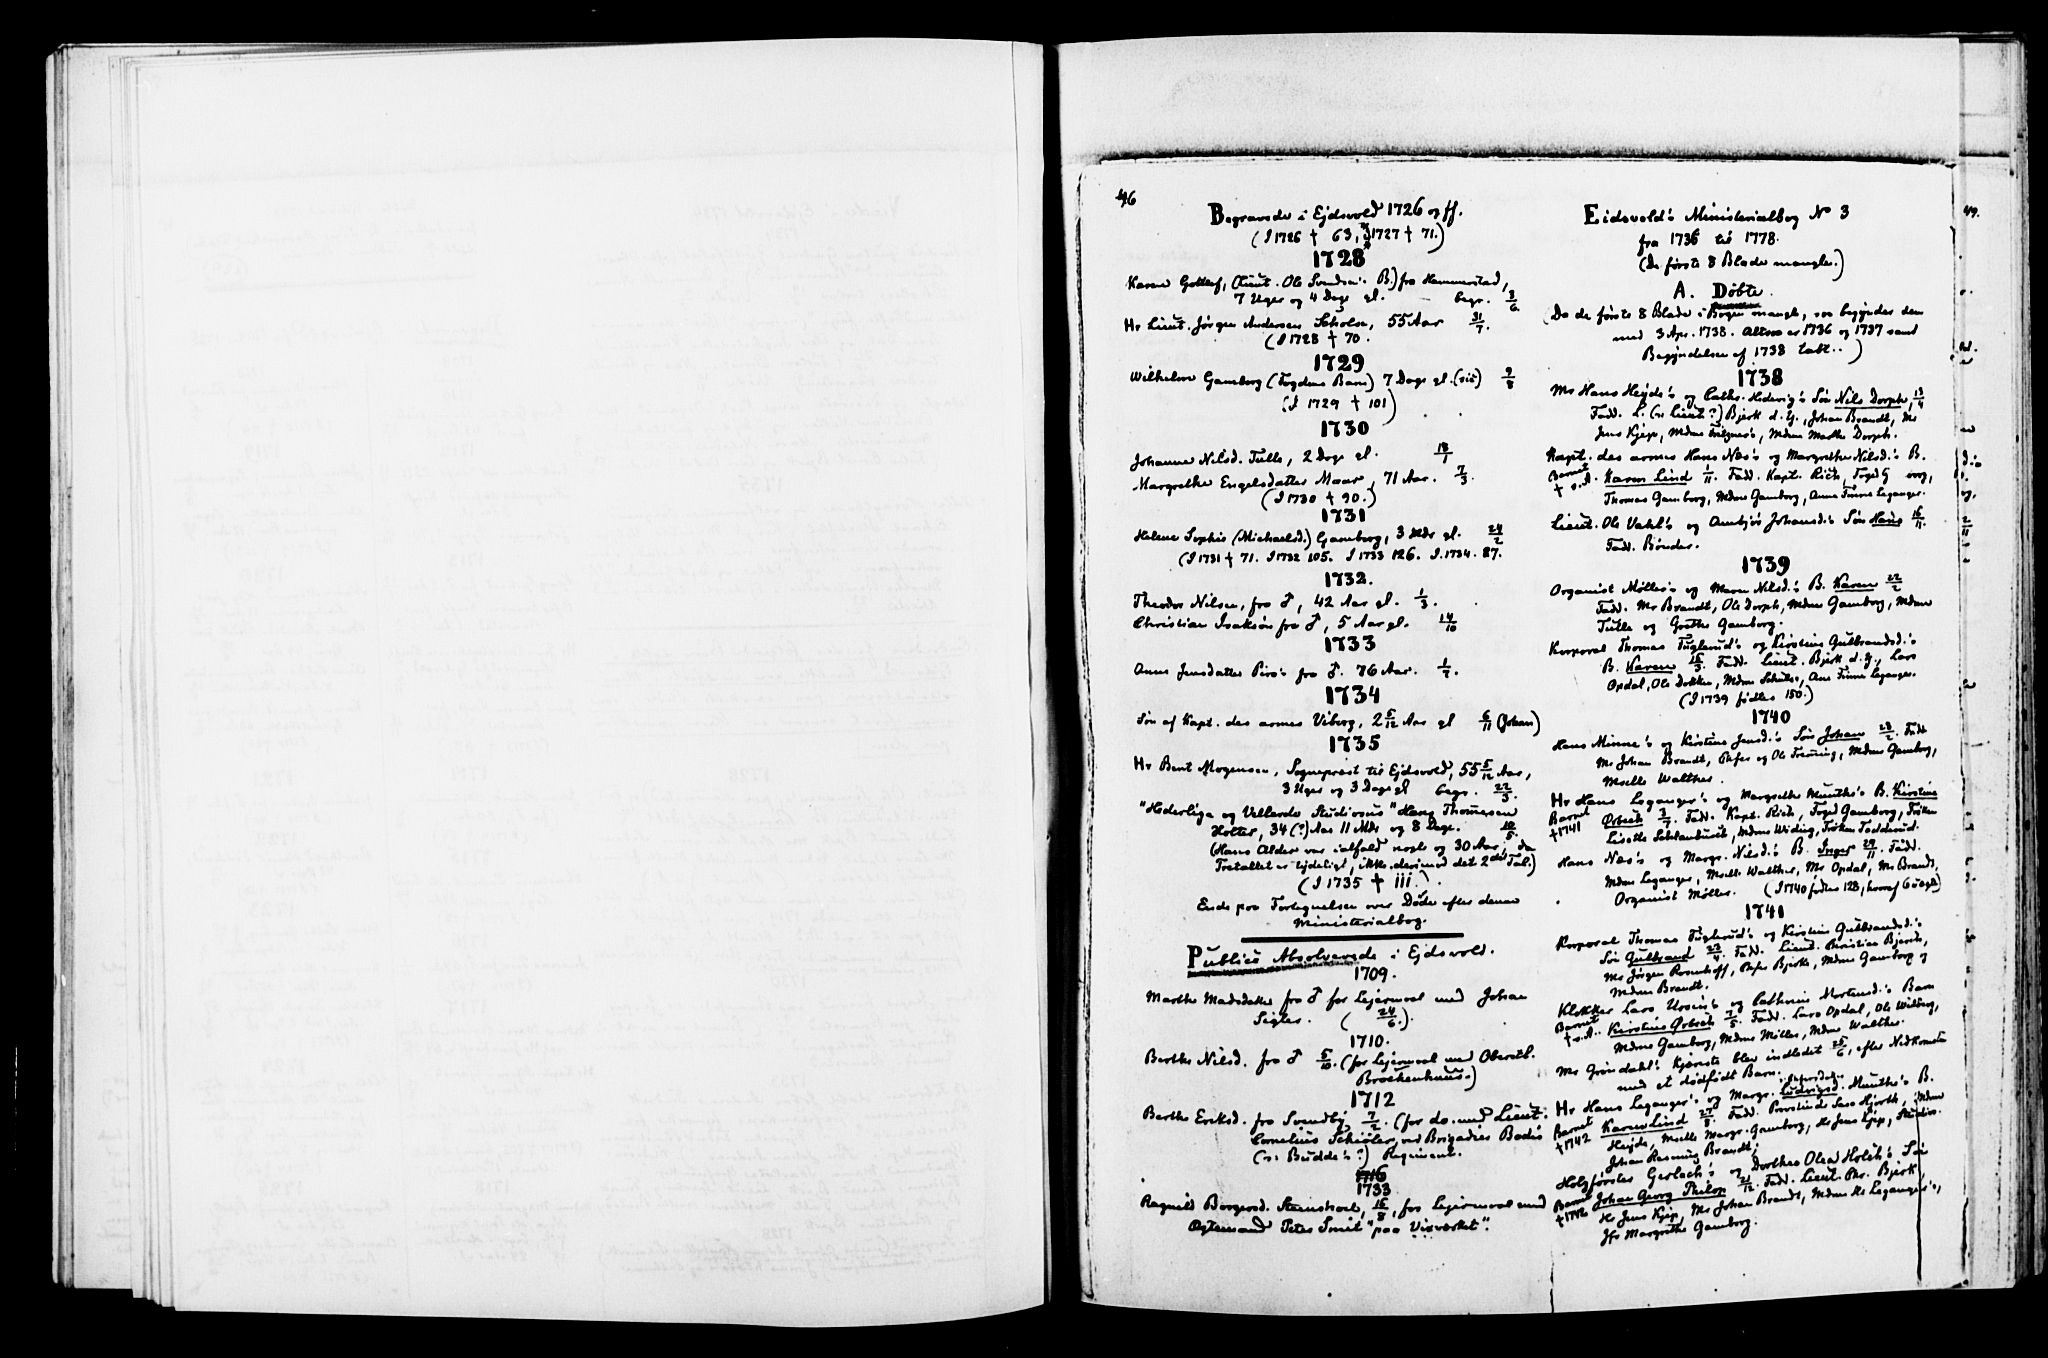 46
Begravede i Ejdsvold 1726 og ff.
(I 1726 † 63, I 1727 † 71.)
1728
Karen Gottlef, (Lieut. Ole Svendsen's B.) fra Hammerstad,
7 Uger og 4 Dage gl. — begr. 3/6.
Hr Lieut. Jørgen Andersen Scholer, 55 Aar 31/7.
(I 1728 † 70.
1729
Wilhelm Gamborg (Fogdens Barn) 7 Dage gl. (sic) 9/8
(I 1729 † 101)
1730
Johanne Nilsd. Tulle, 2 Dage gl. 18/1
Margrethe Engelsdatter Maar, 71 Aar. 7/3.
(I 1730 † 90.)
1731
Helene Sophie (Michaelsd.) Gamborg, 3 Mdr gl. 24/2
(I 1731 † 71. I 1732 105. I 1733 126. I 1734. 87.
1732.
Theodor Nilsen, fra ♂, 42 Aar gl. 1/3.
Christian Isaksøn fra ♂, 5 Aar gl. 14/10
1733
Anne Jensdatter Piro's fra ♂. 76 Aar. 1/7.
1734
Søn af Kapt. des armes Viborg, 2 5/12 Aar gl 6/11 (Johan)
1735
Hr Bent Mogensen, Sogneprest til Ejdsvold, 55 5/12 Aar,
3 Uger og 3 Dage gl begr. 22/3.
"Hæderlige og Vellærde Studiosus" Hans Thomesen
Holter, 34 (?) Aar 11 Mdr og 8 Dage. 10/5.
(Hans Alder var ialfald nogle og 30 Aar, da
Tretallet er tydeligt, ikke derimod det 2det Tal.)
(I 1735 † 111.)
Ende paa Fortegnelsen over Døde efter denne
Ministerialbog.
Publice Absolverede i Ejdsvold.
1709.
Marthe Madsdatter fra ♂ for Lejermaal med Johan
Sigler. (24/6.).
1710.
Berthe Nilsd. fra ♂ 5/10. (for Lejermaal med Oberstl.
Brockenhuus.)
1712
Berthe Eriksd. fra Svendby 7/2. (for do. med Lieut.
Cornelius Schiøler, ved Brigadier Bodes
(ɔ: Budde's?) Regiment.
1716
1733
Ragnild Borgersd. Steensrud, 16/8, for Lejermaal med
Ægtemand Peter Smit "paa Visværket".
Eidsvold's Ministerialbog No 3
fra 1736 til 1778.
(De første 8 Blade mangler.)
A. Døbte.
(Da de første 8 Blade i Bogen mangle, saa begynder den
med 3 Apr. 1738. Altsaa er 1736 og 1737 samt
Begyndelsen af 1738 tabt..)
1738
Mr Hans Hejde's og Cathr. Hedevig's Søn Nils Dorph, 13/4
Fadd. L. (ɔ: Lieut?) Bjerk d. Y., Johan Brandt, Mr
Jens Kjep, Mdme, Mdme Marthe Dorph.
Kapt. des armes Hans Næs's og Margrethe Nilsd.'s B.
Barnet † s.A. Karen Lind 1/11. Fadd. Kapt. Rich, Foged G  org,
Thomas Gamborg, Mdme Gamborg, Anne Finne Leganger.
Lieut. Ole Vahl's og Ambjør Johansd.'s Søn Hans 16/11.
Fadd. Bønder.
1739
Organist Møller's og Maren Nilsd.'s B. Karen 22/2
Fadd. Mr Brandt, Ole Dorph, Mdme Gamborg, Mdme
Tulle og Grethe Gamborg.
Korporal Thomas Fuglerud's og Kirstine Gulbrandsd.'s
B. Karen 15/3. Fadd. Lieut. Bjerk d. Y., Lars
Opdal, Ole Dokken, Mdme Schulter, Ane Finne Leganger.
(I 1739 fødtes 150.)
1740
Hans Minne's og Kirstine Jensd.'s Søn Johan 28/2. Fadd
Mr Johan Brandt, Peder og Ole Frøning, Mdme Gamborg,
Mselle Walther.
Hr Hans Leganger's og Margrethe Munthe's B. Kirstine
Barnet †1741 Ørbech 3/7. Fadd. Kapt. Rich, Foged Gamborg, Frøken
Liselle Schlanbusch, Mdme Widing, Frøken Todderud.
Hans Næs's og Margr. Nilsd.'s B. Inger 29/11. Fadd.
Mdme Leganger, Mselle Walther, Mr Opdal, Mr Brandt,
Organist Møller. (I 1740 fødtes 123, hvoraf 6 uægte)
1741
Korporal Thomas Fuglerud's og Kirstine Gulbrandsd.'s
Søn Gulbrand 23/4. Fadd. Lieut. Christian Bjerch,
Mr Jørgen Rosenhoff, Peder Bjerke, Mdme Gamborg og
Mdme Brandt.
Klokker Lars Ursin's og Cathrine Mortensd.'s Barn
Barnet † s.A. Kirstine Ørbech 7/5. Fadd. Lars Opdal, Ole Wiborg,
Mdme Gamborg, Mdme Möller, Mdme Walther.
Mr Grøndahl's Kjæreste blev indledet 25/6, efter Nedkomsten
med et dødfødt Barn.
Hr Hans Leganger's og Margr. Ludvigsd. Munthe's B.
Barnet †1742 Karen Lind 27/8. Fadd. Provstinde Sara Hjorth, Mdme
Hejde, Mselle Margr. Gamborg, Hr Jens Kjep, Studios.
Johan Rasmus Brandt;
Holzførster Gerlach's og Dorthea Olea Holch's Søn
Barnet †1742 Johan Georg Philop 21/12. Fadd. Lieut. Chr. Bjerk,
Hr Jens Kjep, Mr Johan Brandt, Mdme Hr Leganger's,
Jfr Margrethe Gamborg.
49.